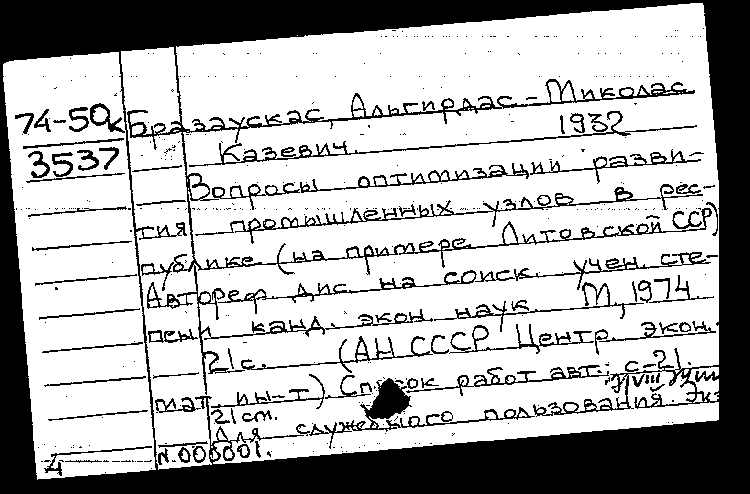 74-50к
3537
Бразаускас, Альгирдас-Миколас
Казевич. 1932
Вопросы оптимизации разви-
тия промышленных узлов в рес-
публике (на примере Литовской ССР)
Автореф. дис. на соиск. учен. сте-
пени канд. экон. наук. М., 1974.
21с. (АН СССР. Центр. экон.-
мат. ин-т). Список работ авт.: с-21.
21см.
Для служебного пользования. Экз
N.000001.
4